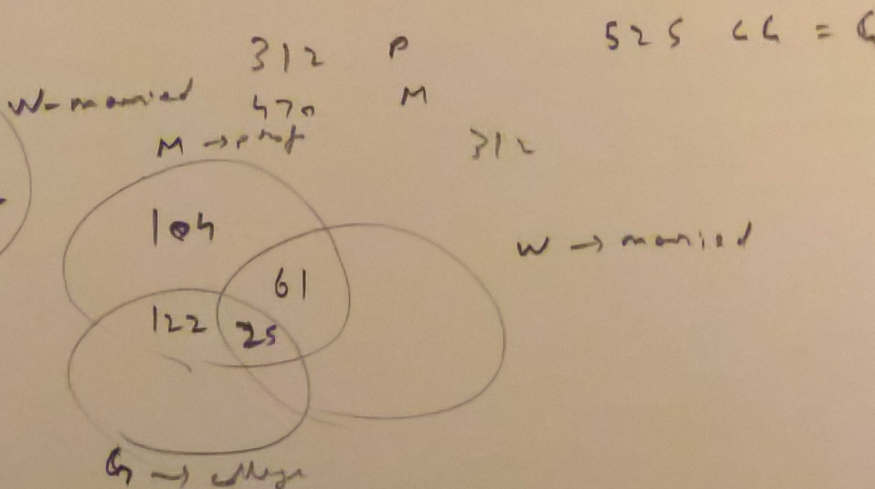 312 P 525 CG = G
W-married 470 M
M → prof 312
104
W → married
61
122 25
G → college